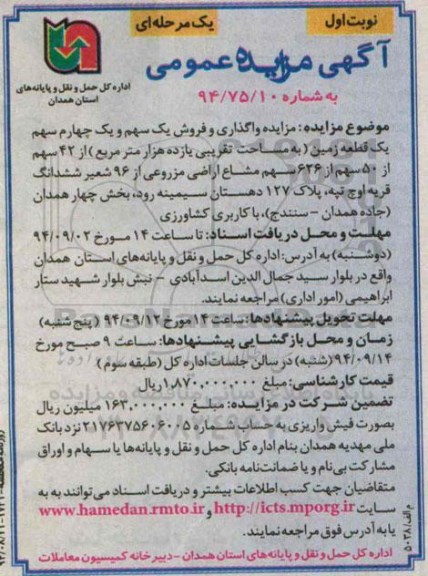 نوبت اول
یک مرحله‌ای
آگهی مزایده عمومی
به شماره ۹۴/۷۵/۱۰
اداره کل حمل و نقل و پایانه‌های
استان همدان
موضوع مزایده: مزایده واگذاری و فروش یک سهم و یک چهارم سهم
یک قطعه زمین ( به مساحت تقریبی یازده هزار متر مربع ) از ۴۲ سهم
از ۵۰ سهم از ۶۲۶ سهم مشاع اراضی مزروعی از ۹۶ شعیر ششدانگ
قریه اوچ تپه، پلاک ۱۲۷ دهستان سیمینه رود، بخش چهار همدان
(جاده همدان - سنندج)، با کاربری کشاورزی
مهلت و محل دریافت اسناد: تا ساعت ۱۴ مورخ ۹۴/۰۹/۰۲
(دوشنبه) به آدرس: اداره کل حمل و نقل و پایانه‌های استان همدان
واقع در بلوار سید جمال الدین اسدآبادی - نبش بلوار شهید ستار
ابراهیمی (امور اداری) مراجعه نمایند.
مهلت تحویل پیشنهادها: ساعت ۱۴ مورخ ۹۴/۰۹/۱۲ ( پنج شنبه)
زمان و محل بازگشایی پیشنهادها: ساعت ۹ صبح مورخ
۹۴/۰۹/۱۴ (شنبه) در سالن جلسات اداره کل (طبقه سوم )
قیمت کارشناسی: مبلغ ۱,۸۷۰,۰۰۰,۰۰۰ ریال
تضمین شرکت در مزایده: مبلغ ۱۶۳,۰۰۰,۰۰۰ میلیون ریال
بصورت فیش واریزی به حساب شماره ۲۱۷۶۳۷۵۶۰۶۰۰۵ نزد بانک
ملی مهدیه همدان بنام اداره کل حمل و نقل و پایانه‌ها یا سهام و اوراق
مشارکت بی‌نام و یا ضمانت‌نامه بانکی.
متقاضیان جهت کسب اطلاعات بیشتر و دریافت اسناد می‌توانند به به
سایت http://icts.mporg.ir و www.hamedan.rmto.ir
یا به آدرس فوق مراجعه نمایند.
اداره کل حمل و نقل و پایانه‌های استان همدان - دبیرخانه کمیسیون معاملات
م الف/۵۰۳۸